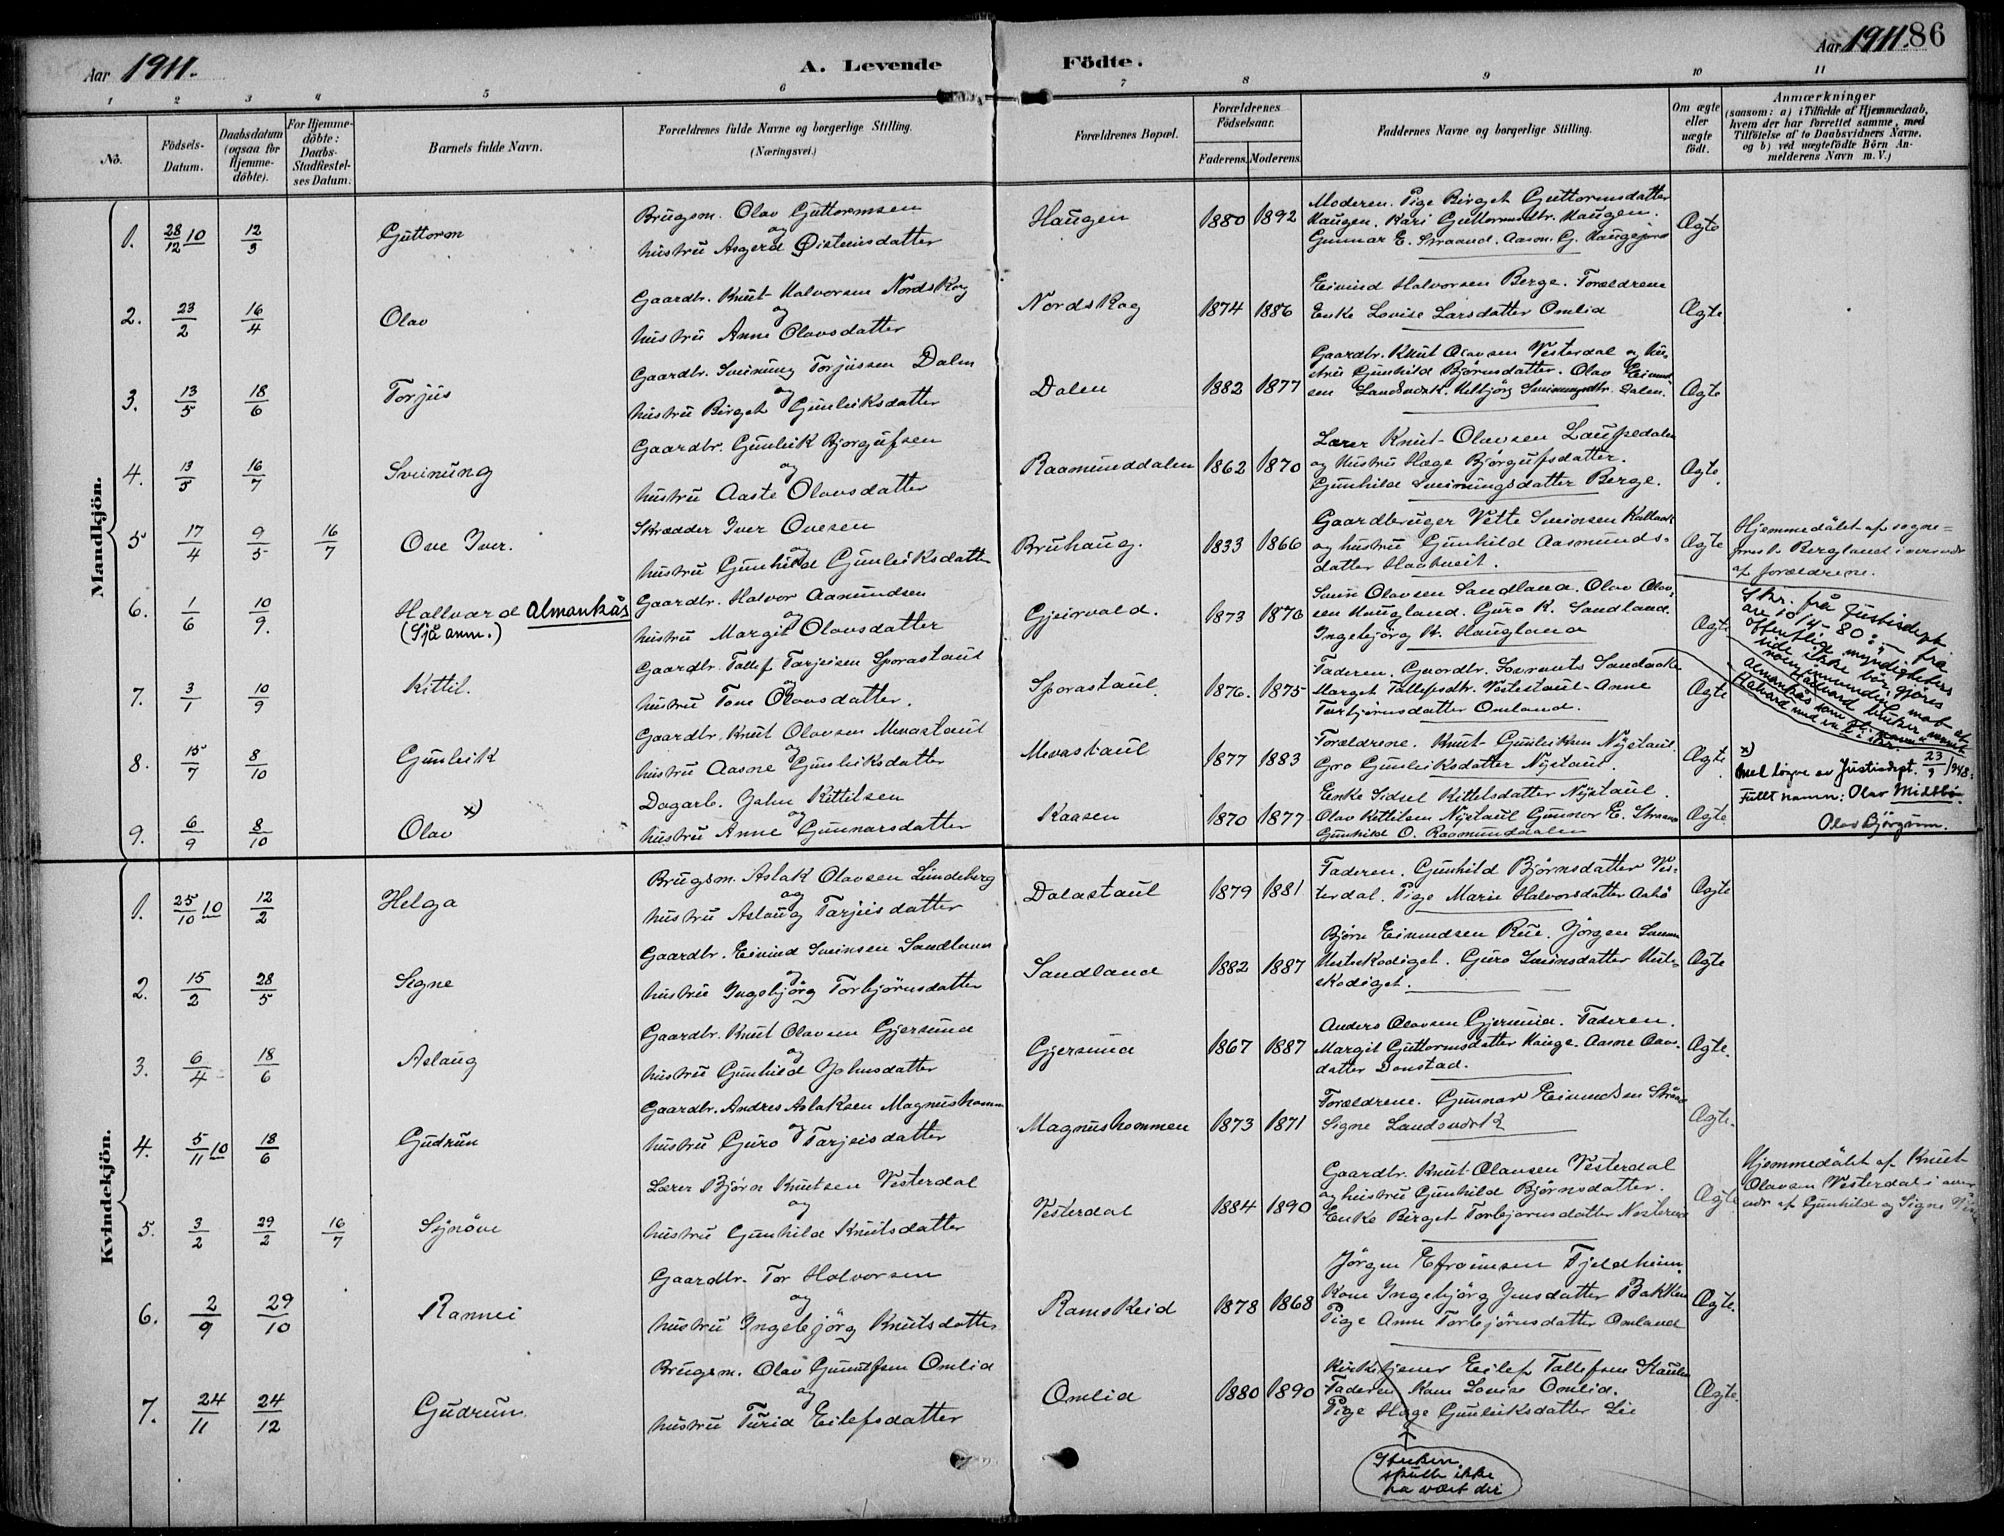 Aar 1911.
A. Levende Födte.
Aar 1911. 86
1 2 3 4 5 6 7 8 9 10 11
No.
Födsels-Datum.
Daabsdatum (ogsaa for Hjemme-döbte).
For Hjemme-döbte: Daabs-Stadfæstel-ses Datum.
Barnets fulde Navn.
Forældrenes fulde Navne og borgerlige Stilling. (Næringsvei.)
Forældrenes Bopæl.
Forældrenes Födselsaar.
Faderens. Moderens.
Faddernes Navne og borgerlige Stilling.
Om ægte eller uægte födt.
Anmærkninger
(saasom: a) i Tilfælde af Hjemmedaab,
hvem der har forrettet samme, med
Tilföielse af to Daabsvidners Navne.
og b) ved uægtefödte Börn An-
melderens Navn m. V.)
Mandkjön.
1. 28/12 10 12/3 Guttorm
Brugsm. Olav Guttormsen
og
hustru Asgerd Øisteinsdatter
Haugen 1880 1892
Moderen. Pige Birget Guttormsdatter
Haugen. Kari Guttormsdtr. Haugen.
Gunnar E. Straand. Aasm. G.
Ægte
2. 23/2 16/4 Olav
Gaardbr. Knut Halvorsen Nordskog
og
hustru Anne Olavsdatter
Nordskog 1874 1886
Eivind Halvorsen Berge. Forældrene
Enke Lovise Larsdatter Omlid
Ægte
3. 13/5 18/6 Torjus
Gaardbr. Sveinung Torjussen Dalen
og
hustru Birget Gunleiksdatter
Dalen 1882 1877
Gaardbr. Knut Olavsen Vesterdal og hu-
stru Gunhild Bjørnsdatter. Olav Eivind-
sen Landsverk. Sveinungsdtr. Dalen.
Ægte
4. 13/5 16/7 Sveinung
Gaardbr. Gunleik Bjorgufsen
og
hustru Aaste Olavsdatter
Raamunddalen 1862 1870
Lærer Knut Olavsen Laupedalen
og hustru Hæge Bjørgufsdatter.
Gunhild Sveinungsdatter Berge.
Ægte.
5 17/4 9/5 16/7 Ove Iver.
Skrædder Iver Ovesen
og
hustru Gunhild Gunleiksdatter
Bruhaug. 1833 1866
Gaardbruger Vetle Sveinsen
og hustru Gunhild Aasmunds-
datter Haatveit.
Ægte
Hjemmedöbt af sogne-
prest Bergland i overvær
af forældrene.
6. 1/6 10/9. Hallvard Almankås
(Sjå anm.)
Gaardbr. Halvor Aamundsen
og
hustru Margit Olavsdatter
Gjeirvald. 1873 1876
Svein Olavsen Sandland. Olav Olav-
sen Haugland. Guro K. Sandland.
Ingebjörg H. Haugland
Ægte
Skr. frå Justisdept.
av 10/4-80: fra
offentlige myndigheters
side ikke bör gjöres
noen innvending mot at
Hallvard bruker navnet
Almankås som sl. navn
Halvard med en
7. 3/1 10/9 Kittil.
Gaardbr. Tallef Tarjeisen Sporastaul
og
hustru Tone Olavsdatter.
Sporastaul. 1876. 1875
Faderen. Gaardbr. Lavrants Sandaake
Marget Tallefsdtr. Vistestaul. Anne
Torbjörnsdatter Omland.
Ægte
8. 15/7 8/10 Gunleik
Gaardbr. Knut Olavsen Mevastaul
og
hustru Aasne Gunleiksdatter
Mevastaul 1877 1883
Forældrene. Knut Gunleiksen Nystaul.
Gro Gunleiksdatter Nystaul.
Ægte.
9. 6/9 8/10 Olav x)
Dagarb. John Kittilsen
og
hustru Anne Gunnarsdatter
Kaasen 1870 1877
Enke Sidsel Kittelsdatter Nystaul.
Olav Kittilsen Nystaul Gunnar E. Straand
Gunhild O. Raamunddalen
Ægte
x)
Mel löyve av Justisdept. 23/9 1948.
Fullt namn: Olav Midtbö.
Olav Björgum.
Kvindekjön.
1. 25/10 10 12/2 Helga
Brugsm. Aslak Olavsen Lundeberg
og
hustru Aslaug Tarjeisdatter
Dalastaul 1879 1881
Faderen. Gunhild Bjørnsdatter Ves-
terdal. Pige Marie Halvorsdatter Aabö
Ægte
2. 15/2 28/5 Signe
Gaardbr. Eivind Sveinsen Sandland
og
hustru Ingebjörg Torbjörnsdatter
Sandland 1882 1887
Björn Eivindsen Rue. Jörgen
Vesterkodiget. Guro Sveinsdatter Veste-
kodiget.
Ægte
3. 6/4 18/6 Aslaug
Gaardbr. Knut Olavsen Gjersund
og
hustru Gunhild Johnsdatter
Gjersund 1867 1887
Anders Olavsen Gjersund. Faderen.
Margit Guttormsdatter Hauge. Aasne Olavs-
datter Donstad.
Ægte.
4. 5/11 10 18/6 Gudrun
Gaardbr. Andres Aslaksen Magnushommen
og
hustru Guro Tarjeisdatter
Magnushommen 1873 1871
Forældrene. Gunnar Eivindsen
Signe Landsverk
Ægte.
5. 3/2 29/2 16/7 Synöve
Lærer Björn Knutsen Vesterdal
og
hustru Gunhild Knutsdatter
Vesterdal 1884 1890
Gaardbr. Knut Olavsen Vesterdal
og hustru Gunhild Bjørnsdatter.
Enke Birget Torbjörnsdatter
Ægte
Hjemmedöbt af Knut
Olavsen Vesterdal i over-
vær af Gunhild og Signe
6. 2/9 29/10 Rannei
Gaardbr. Tor Halvorsen
og
hustru Ingebjörg Knutsdatter
Ramskeid 1878 1868
Jörgen Efraimsen Fjeldheim.
Kone Ingebjörg Jensdatter Bakken
Pige Anne Torbjörnsdatter Omland
Ægte.
7. 24/11 24/12 Gudrun
Brugsm. Olav Gunulfsen Omlid
og
hustru Turid Eilefsdatter
Omlid 1880 1890
Kirketjener Eilef Tallefsen
Faderen. Kone Lovise Omlid.
Pige Hæge Gunleiksdatter Lie
Ægte.
Streken
skulle ikke
ha vært der